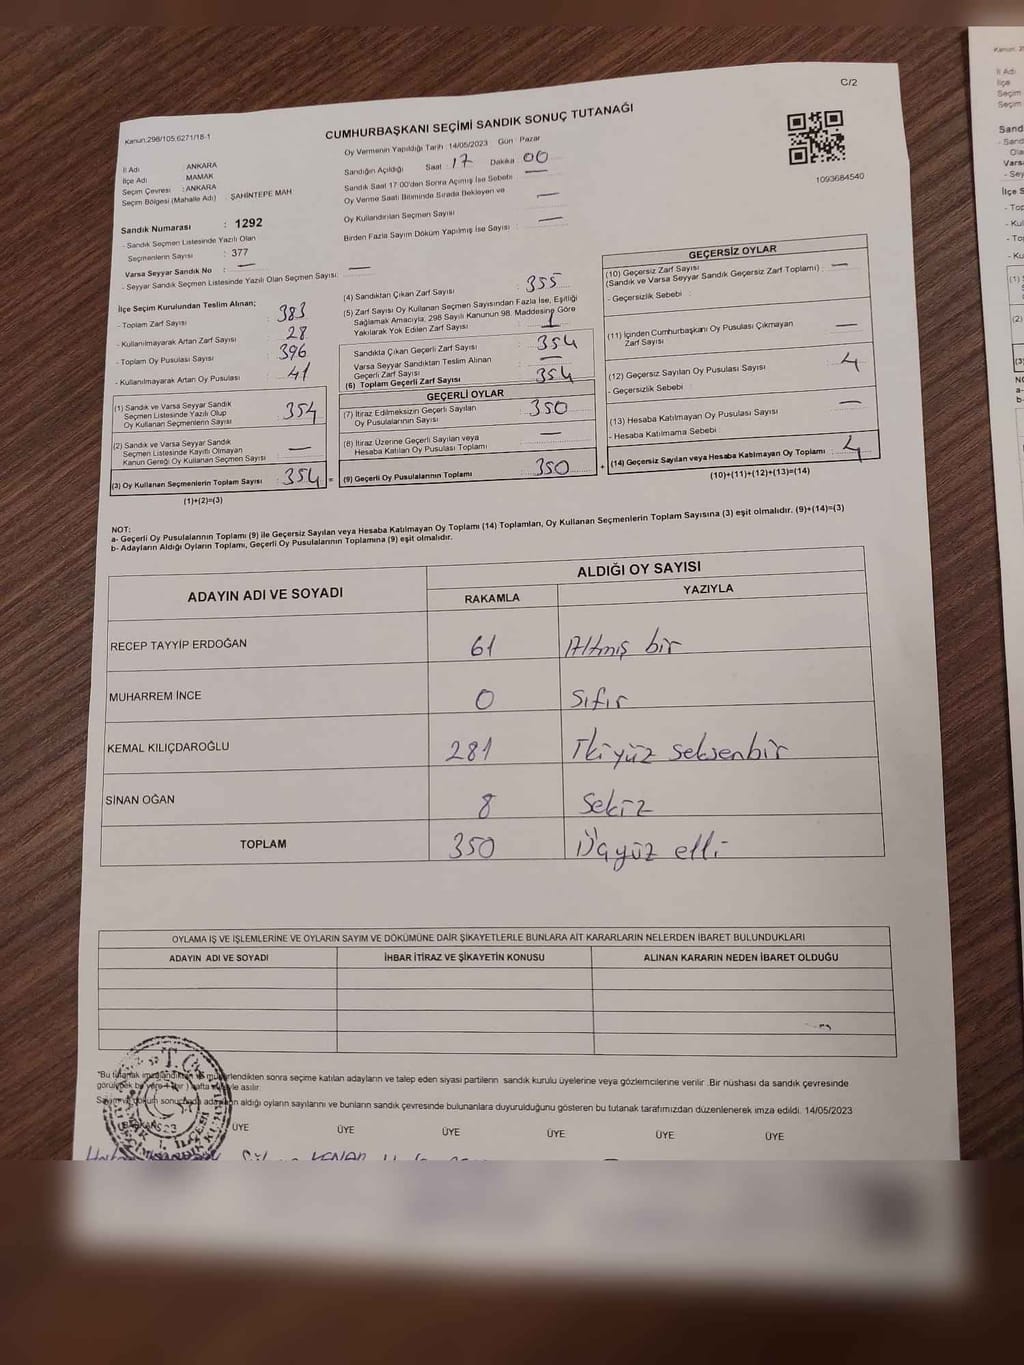 C/2
Kanun:298/105.6271/18-1
CUMHURBAŞKANI SEÇİMİ SANDIK SONUÇ TUTANAĞI
Oy Vermenin Yapıldığı Tarih :14/05/2023 Gün : Pazar
Sandığın Açıldığı Saat : 17 Dakika : 00
Sandık Saat 17:00'den Sonra Açılmış İse Sebebi : —
Oy Verme Saati Bitiminde Sırada Bekleyen ve
Oy Kullandırılan Seçmen Sayısı : —
Birden Fazla Sayım Döküm Yapılmış İse Sayısı : —
1093684540
İl Adı : ANKARA
İlçe Adı : MAMAK
Seçim Çevresi : ANKARA
Seçim Bölgesi (Mahalle Adı) : ŞAHİNTEPE MAH
Sandık Numarası : 1292
- Sandık Seçmen Listesinde Yazılı Olan
Seçmenlerin Sayısı : 377
Varsa Seyyar Sandık No : —
- Seyyar Sandık Seçmen Listesinde Yazılı Olan Seçmen Sayısı: —
İlçe Seçim Kurulundan Teslim Alınan;
- Toplam Zarf Sayısı : 383
- Kullanılmayarak Artan Zarf Sayısı : 28
- Toplam Oy Pusulası Sayısı : 396
- Kullanılmayarak Artan Oy Pusulası : 41
(1) Sandık ve Varsa Seyyar Sandık
Seçmen Listesinde Yazılı Olup
Oy Kullanan Seçmenlerin Sayısı : 354
(2) Sandık ve Varsa Seyyar Sandık
Seçmen Listesinde Kayıtlı Olmayan
Kanun Gereği Oy Kullanan Seçmen Sayısı : —
(3) Oy Kullanan Seçmenlerin Toplam Sayısı : 354 =
(1)+(2)=(3)
(4) Sandıktan Çıkan Zarf Sayısı : 355
(5) Zarf Sayısı Oy Kullanan Seçmen Sayısından Fazla İse, Eşitliği
Sağlamak Amacıyla; 298 Sayılı Kanunun 98. Maddesine Göre
Yakılarak Yok Edilen Zarf Sayısı : 1
Sandıkta Çıkan Geçerli Zarf Sayısı : 354
Varsa Seyyar Sandıktan Teslim Alınan
Geçerli Zarf Sayısı : —
(6) Toplam Geçerli Zarf Sayısı : 354
GEÇERLİ OYLAR
(7) İtiraz Edilmeksizin Geçerli Sayılan
Oy Pusulalarının Sayısı : 350
(8) İtiraz Üzerine Geçerli Sayılan veya
Hesaba Katılan Oy Pusulası Toplamı : —
(9) Geçerli Oy Pusulalarının Toplamı : 350 +
GEÇERSİZ OYLAR
(10) Geçersiz Zarf Sayısı
(Sandık ve Varsa Seyyar Sandık Geçersiz Zarf Toplamı) : —
- Geçersizlik Sebebi :
(11) İçinden Cumhurbaşkanı Oy Pusulası Çıkmayan
Zarf Sayısı : —
(12) Geçersiz Sayılan Oy Pusulası Sayısı : 4
- Geçersizlik Sebebi :
(13) Hesaba Katılmayan Oy Pusulası Sayısı : —
- Hesaba Katılmama Sebebi :
(14) Geçersiz Sayılan veya Hesaba Katılmayan Oy Toplamı : 4
(10)+(11)+(12)+(13)=(14)
NOT:
a- Geçerli Oy Pusulalarının Toplamı (9) ile Geçersiz Sayılan veya Hesaba Katılmayan Oy Toplamı (14) Toplamları, Oy Kullanan Seçmenlerin Toplam Sayısına (3) eşit olmalıdır. (9)+(14)=(3)
b- Adayların Aldığı Oyların Toplamı, Geçerli Oy Pusulalarının Toplamına (9) eşit olmalıdır.
ADAYIN ADI VE SOYADI
ALDIĞI OY SAYISI
RAKAMLA YAZIYLA
RECEP TAYYİP ERDOĞAN 61 Altmış bir
MUHARREM İNCE 0 Sıfır
KEMAL KILIÇDAROĞLU 281 İkiyüz seksenbir
SİNAN OĞAN 8 Sekiz
TOPLAM 350 Üçyüz elli
OYLAMA İŞ VE İŞLEMLERİNE VE OYLARIN SAYIM VE DÖKÜMÜNE DAİR ŞİKAYETLERLE BUNLARA AİT KARARLARIN NELERDEN İBARET BULUNDUKLARI
ADAYIN ADI VE SOYADI İHBAR İTİRAZ VE ŞİKAYETİN KONUSU ALINAN KARARIN NEDEN İBARET OLDUĞU
"Bu tutanak sonra seçime katılan adayların ve talep eden siyasi partilerin sandık kurulu üyelerine veya gözlemcilerine verilir .Bir nüshası da sandık çevresinde
asılır.
aldığı oyların sayılarını ve bunların sandık çevresinde bulunanlara duyurulduğunu gösteren bu tutanak tarafımızdan düzenlenerek imza edildi. 14/05/2023
ÜYE ÜYE ÜYE ÜYE ÜYE ÜYE